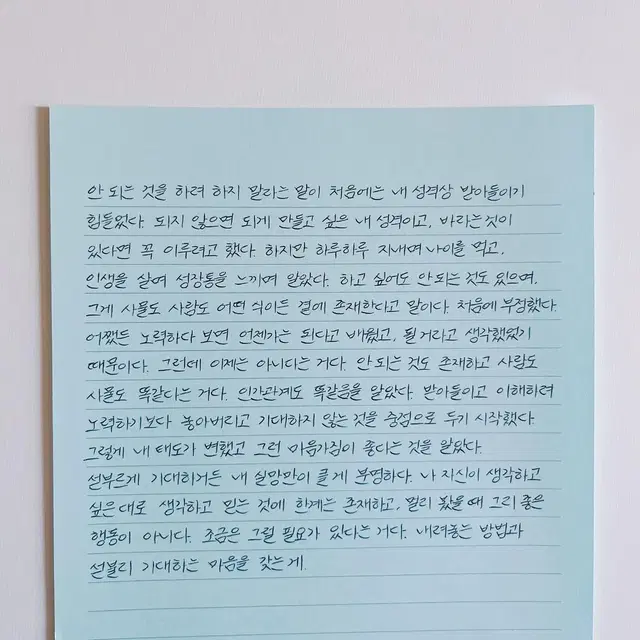 안 되는 것을 하려 하지 말라는 말이 처음에는 내 성격상 받아들이기
힘들었다. 되지 않으면 되게 만들고 싶은 내 성격이고, 바라는것이
있다면 꼭 이루려고 했다. 하지만 하루하루 지내며 나이를 먹고,
인생을 살며 성장통을 느끼며 알았다. 하고 싶어도 안되는 것도 있으며,
그게 사물도 사람도 어떤 식이든 곁에 존재한다고 말이다. 처음에 부정했다.
어쨌든 노력하다 보면 언젠가는 된다고 배웠고, 될거라고 생각했었기
때문이다. 그런데 이제는 아니다는 거다. 안 되는 것도 존재하고 사람도
사물도 똑같다는 거다. 인간관계도 똑같음을 알았다. 받아들이고 이해하려
노력하기보다 놓아버리고 기대하지 않는 것을 중점으로 두기 시작했다.
그렇게 내 태도가 변했고 그런 마음가짐이 좋다는 것을 알았다.
섣부르게 기대하거든 내 실망만이 클 게 분명하다. 나 자신이 생각하고
싶은 대로 생각하고 믿는 것에 한계는 존재하고, 멀리 봤을 때 그리 좋은
행동이 아니다. 조금은 그럴 필요가 있다는 거다. 내려놓는 방법과
섣불리 기대하는 마음을 갖는 게.